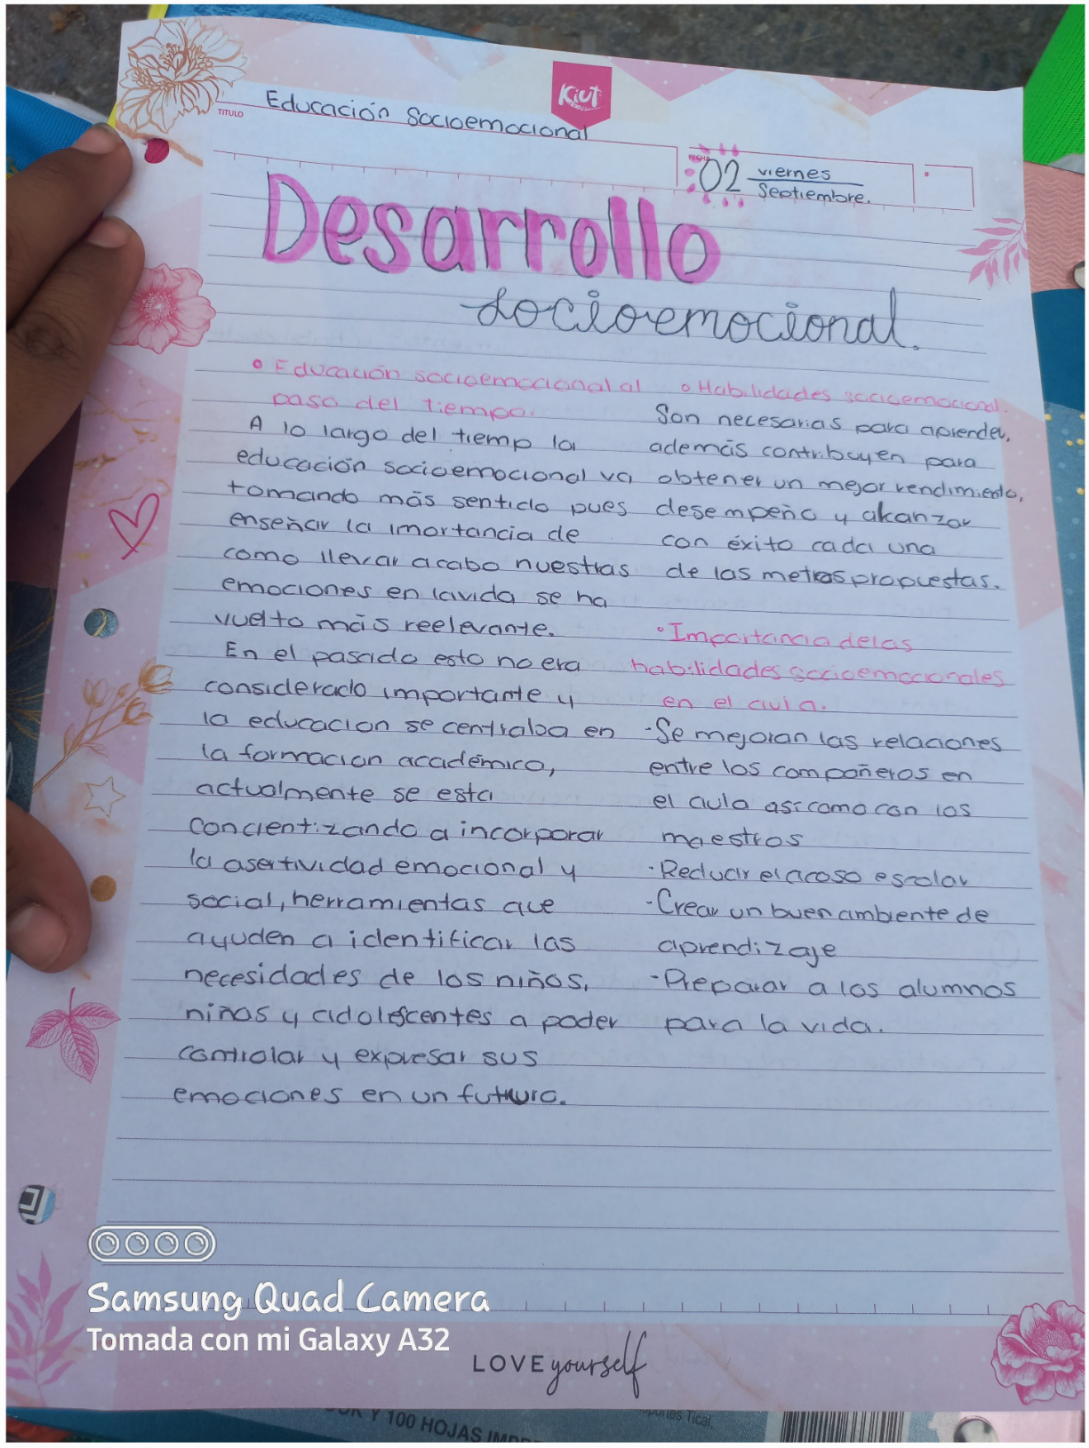 Kiut
TITULO
Educación Socioemocional
02 viernes
Septiembre.
Desarrollo
socioemocional.
• Educación socioemocional al
paso del tiempo.
A lo largo del tiemp la
educación socioemocional va
tomando más sentido pues
enseñar la imortancia de
como llevar acabo nuestras
emociones en lavida se ha
vuelto más reelevante.
En el pasado esto no era
considerado importante y
la educacion se centraba en
la formacion académica,
actualmente se esta
concientizando a incorporar
la asertividad emocional y
social, herramientas que
ayuden a identificar las
necesidades de los niños,
niñas y adolescentes a poder
controlar y expresar sus
emociones en un futuro.
• Habilidades socioemocional.
Son necesarias para aprender,
además contribuyen para
obtener un mejor rendimiento,
desempeño y alcanzar
con éxito cada una
de las metas propuestas.
• Importancia de las
habilidades socioemocionales
en el aula.
- Se mejoran las relaciones
entre los compañeros en
el aula asi como con los
maestros
- Reducir el acoso escolar
- Crear un buen ambiente de
aprendizaje
- Preparar a los alumnos
para la vida.
Samsung Quad Camera
Tomada con mi Galaxy A32
LOVE yourself
Y 100 HOJAS
Tical.